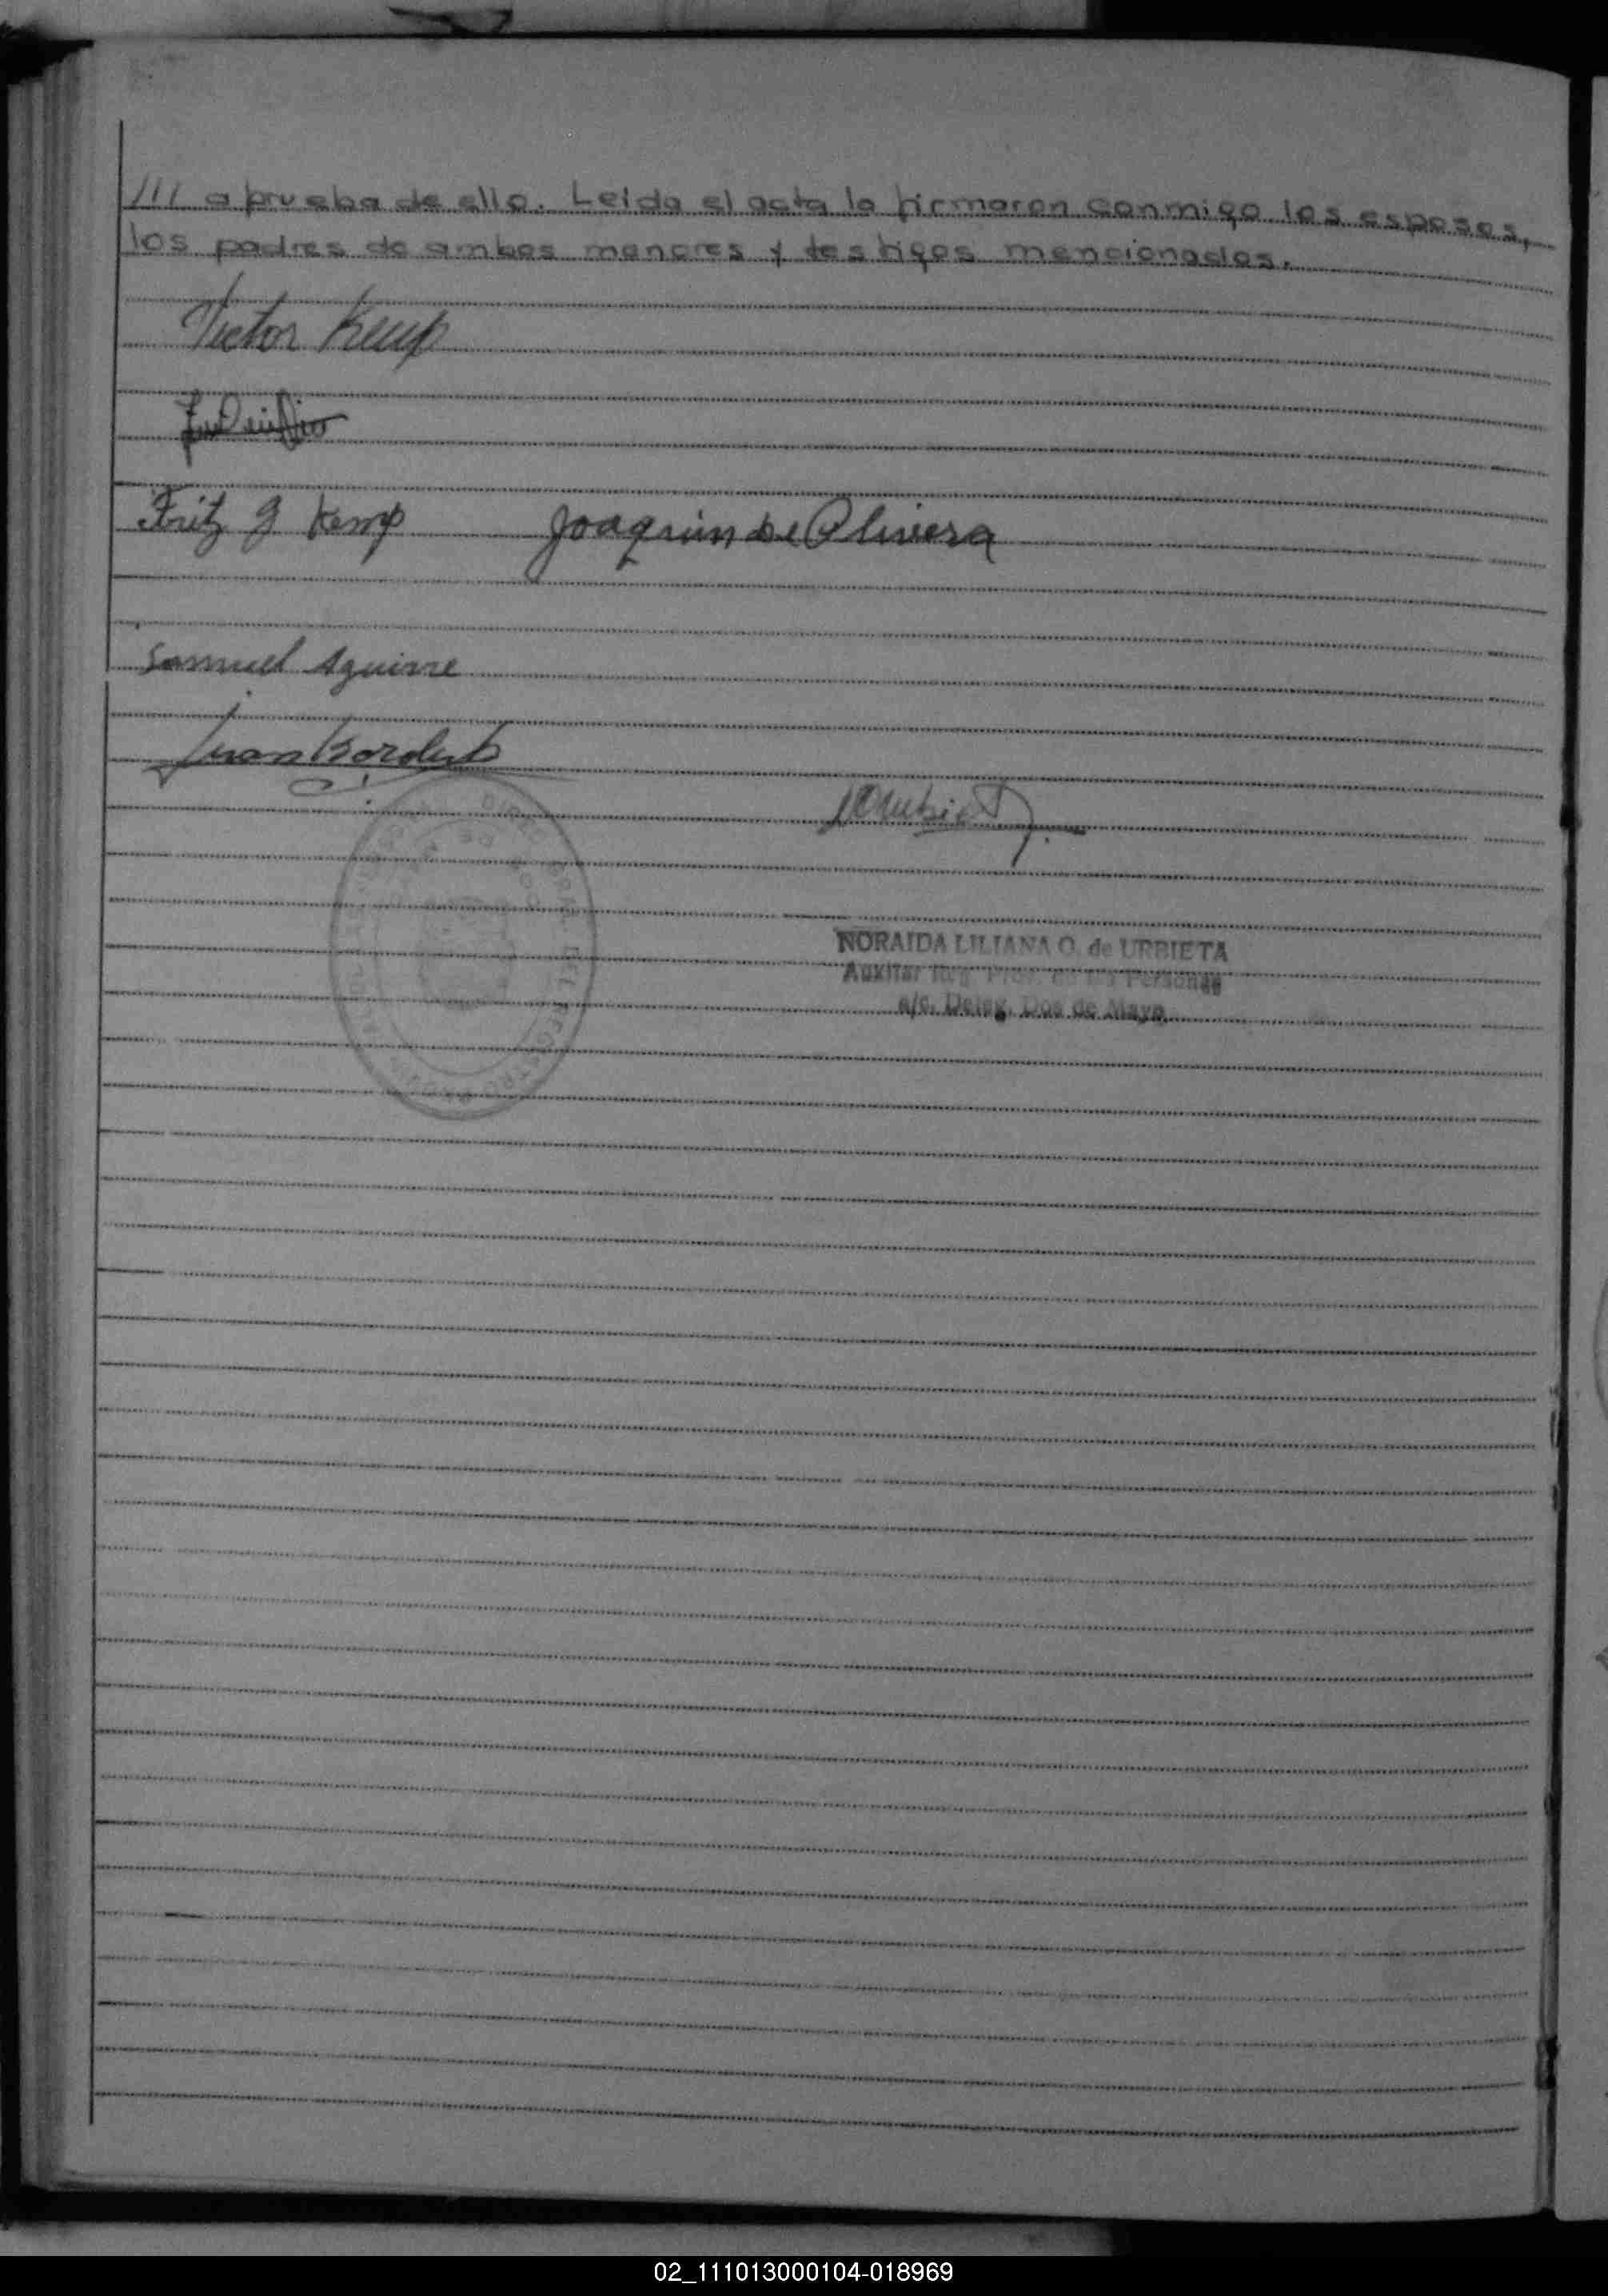 /// a prueba de ello. Leida el acta la firmaron conmigo los esposos,
los padres de ambos menores y testigos mencionados.
Victor Kemp
Fritz G Kemp Joaquin de Olivera
Samuel Aguirre
Juan
NORAIDA LILIANA O. de URBIETA
Auxiliar Reg. Prov. de las Personas
a/c. Deleg. Dos de Mayo
02_111013000104-018969